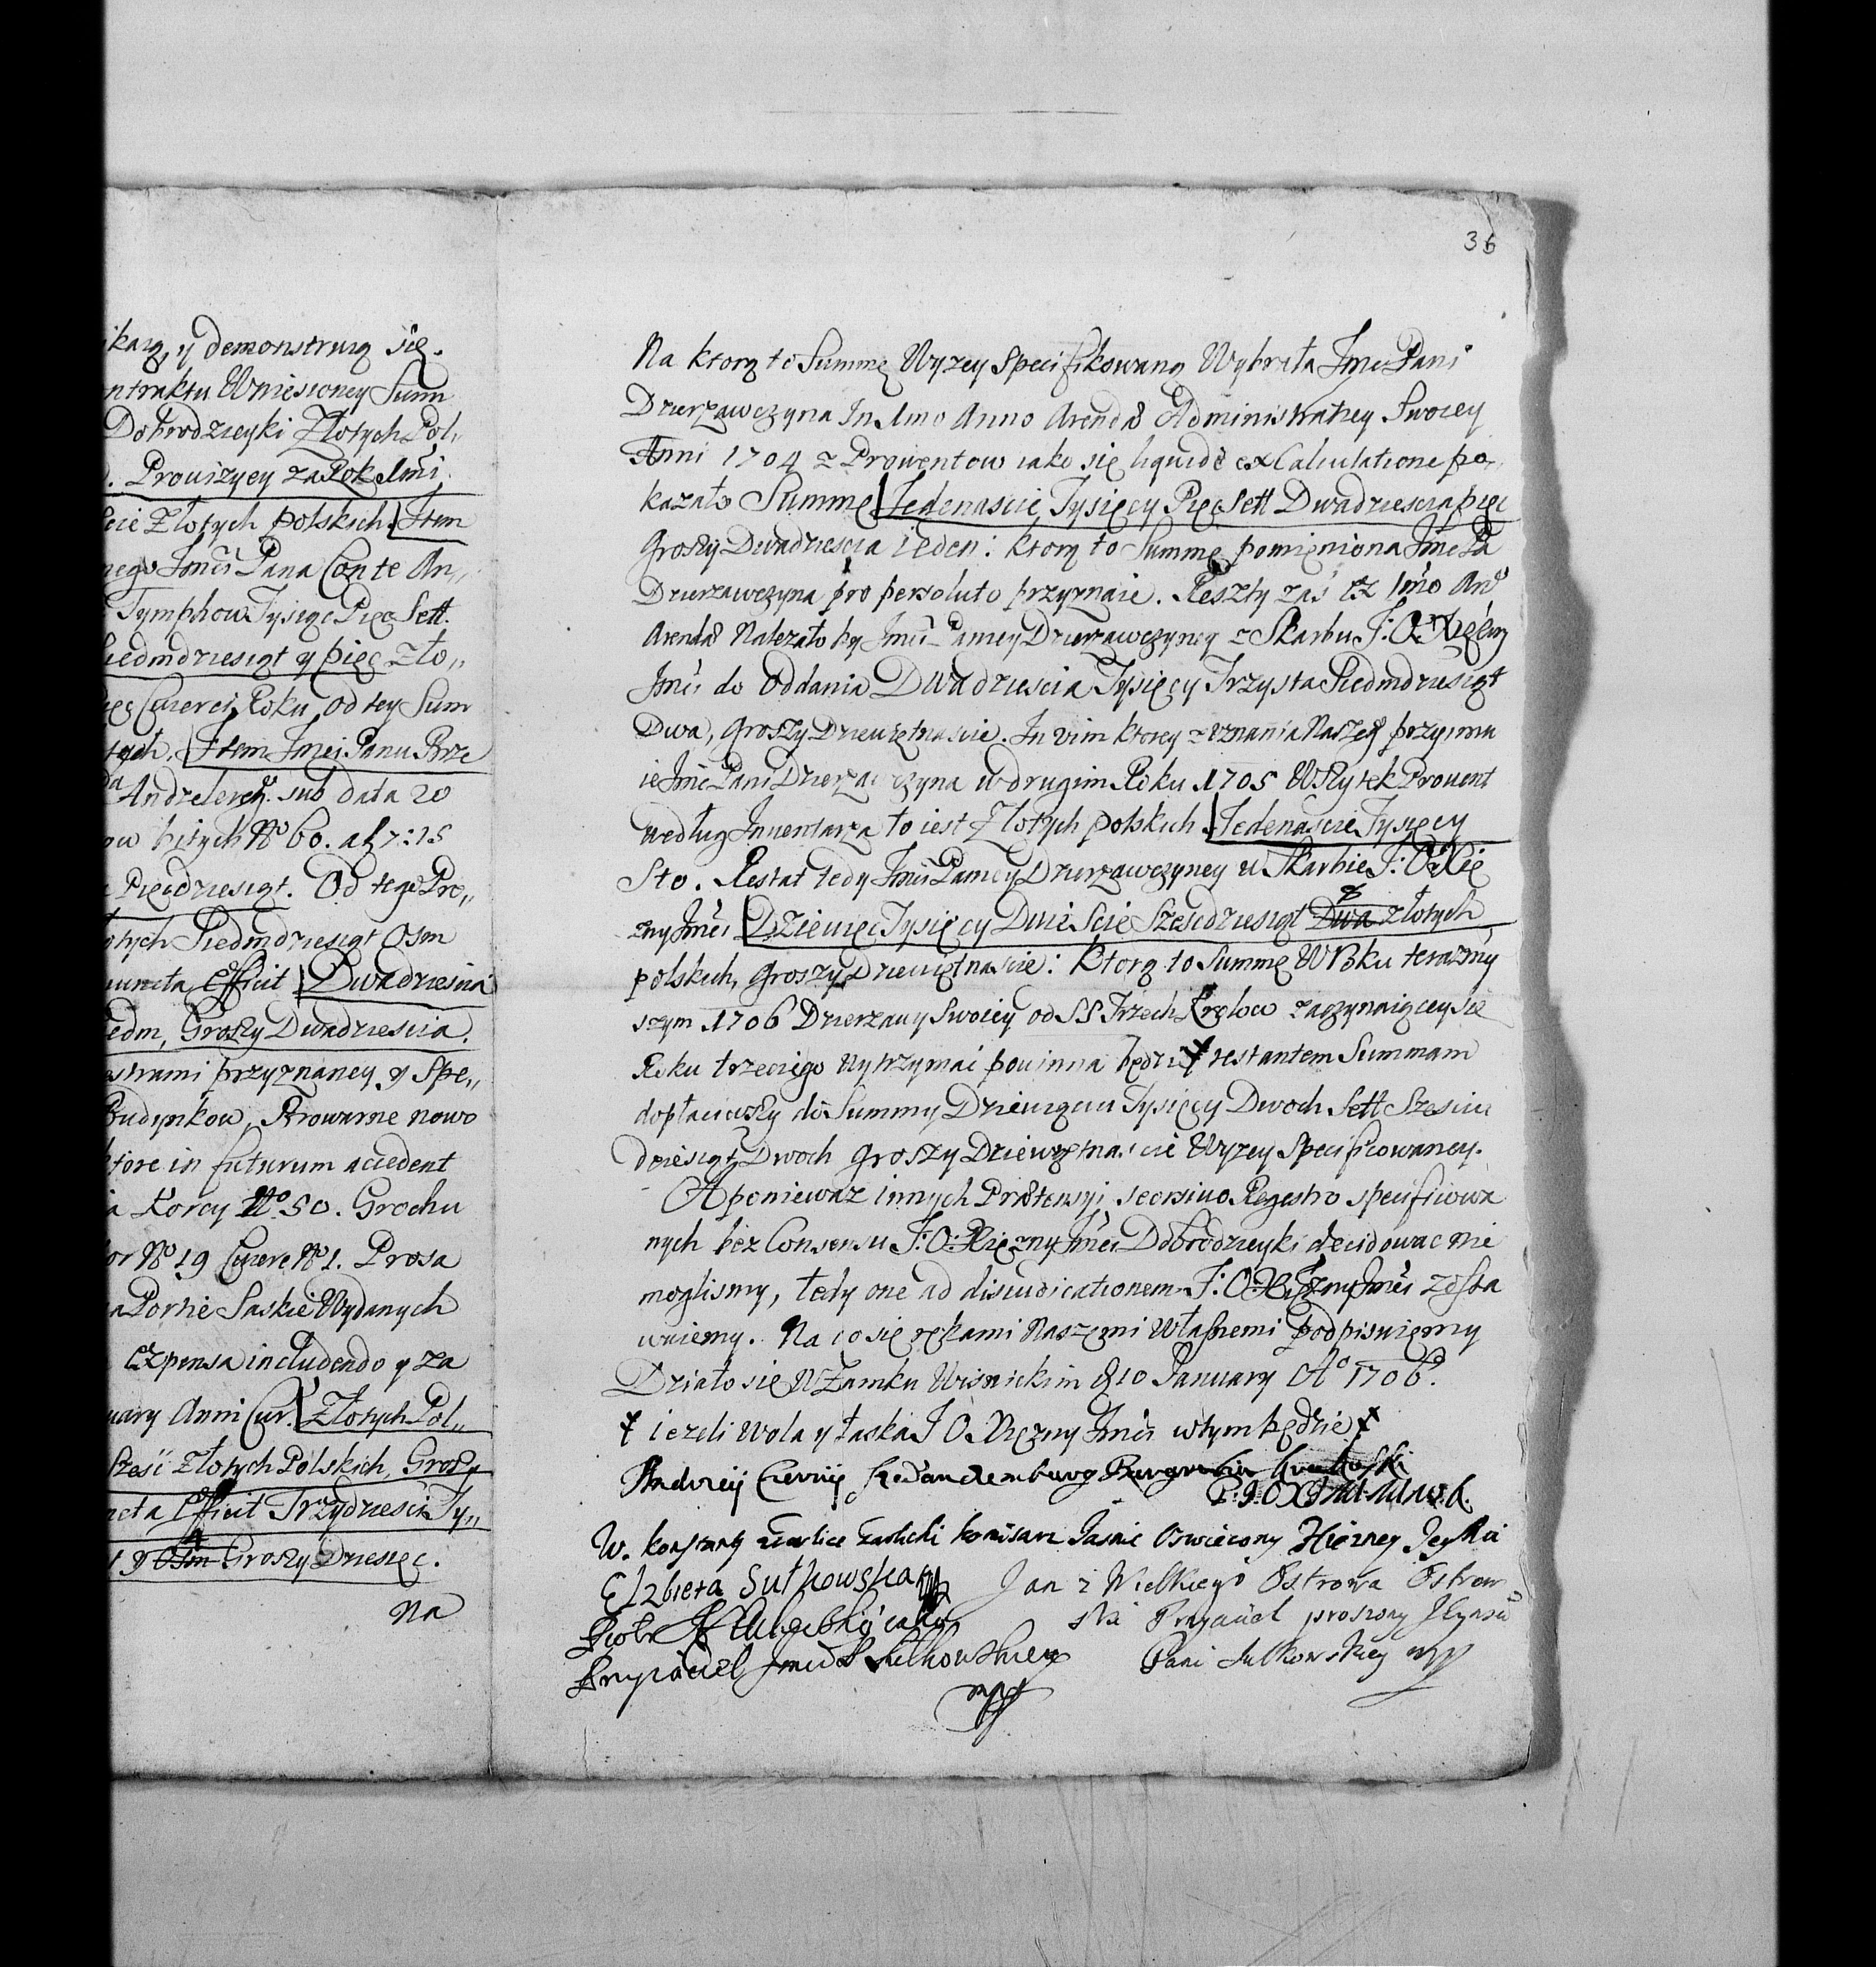 36
karą, y demonstruią się.
ntraktu Wniesioney Sum
Dobrodzieyki Złotych Pol„
Prowizyey za Rok 1mi
Złotych polskich. Item
nego Jmci Pana Conte An„
Tymphow Tysiąc Pięc Sett.
siedmdziesiąt y pięc zło„
Czwerci Roku, od tey Sum
tych. Item Jmci Panu Prze
sub data 20
ow bitych No 60. a f 7:15
Piecdziesiąt. Od tego Pro„
otych Siedmdziesiąt Osm
uncta Efficit Dwadziescia
edm, Groszy Dwadziescia.
estrami przyznaney y Spe„
Budynkow, Browarne nowo
ktore in futurum accedent
a Korcy No 50. Grochu
or No 19 Czwerc No 1. Prosa
na Porcie Saskie Wydanych
Expensa includendo y za
uary Anni Cur. Złotych Pol„
Szesc Złotych Polskich, Groszy
ncta Efficit Trzydziesci Ty„
y Osm Groszy Dziesięc.
Na
Na ktorą to Summę Wyzey Specifikowaną Wybrała Jmc Pani
Dzierzawczyna In 1mo Anno Arendæ Administratiey Swoiey
Anni 1704 z Prowentow iako się liquide ex Calculatione po„
kazało Summę Jedenascie Tysięcy Pięc Sett Dwadziescia pięc
Groszy Dwadziescia ieden: ktorą to Summę pomieniona Jmc Pa
Dzierzawczyna pro persoluto przyznaie. Reszty zas ex 1mo Anō
Arendæ Nalezało by Jmci Paniey Dzierzawczyney z Skarbu J: O: Xięzny
Jmci do Oddania Dwadziescia Tysięcy Trzysta Siedmdziesiąt
Dwa, Groszy Dziewiętnascie. In vim ktorey z uznania Naszego przyima
ie Jmc Pani Dzierzawczyna w drugim Roku 1705 Wszytek Prowent
według Inwentarza to iest Złotych polskich Jedenascie Tysięcy
Sto. Restat tedy Jmci Paniey Dzierzawczyney w Skarbie J: O: Xię
zny Jmci Dziewięc Tysięcy Dwie Scie Szescdziesiąt Dwa złotych
polskich, Groszy Dziewiętnascie: Ktorą to Summę W Roku terazniey
szym 1706 Dzierzawy Swoiey od SS Trzech Krolow zaczynaiącey się
Roku trzeciego wytrzymac powinna będzie ⨎ restantem Summam
dopłaciwszy do Summy Dziewięciu Tysięcy Dwoch Sett Szesciu
dziesiąt Dwoch Groszy Dziewiętnascie Wyzey Specificowaney.
A poniewaz innych Prætensyi, seorsivo Regestro specificowa
nych bez Consensu J: O: Xięzny Jmci Dobrodzieyki decidowac nie
moglismy, tedy one ad disiudicationem J: O: Xięzny Jmci zosta
wuiemy. Na co się rękami Naszemi Własnemi podpisuiemy
Działo się W Zamku Wisnickim d 10 January Ao 1706.
⨎ iezeli Wola y Łaska J O. Xięzny Jmci w tym będzie ⨎
Andrzey Czerny
W. Konstanty komisarz Jasnie Oswieconey Xięzney Jey Mci
Elzbieta Sułkowska mp
Jan z Wielkiego Ostrowa Ostrow
Piotr iako
ski Przyaciel proszony
Przyiaciel Jmci P Sulkowskiey
Pani Sulkowskiey mp
mpp